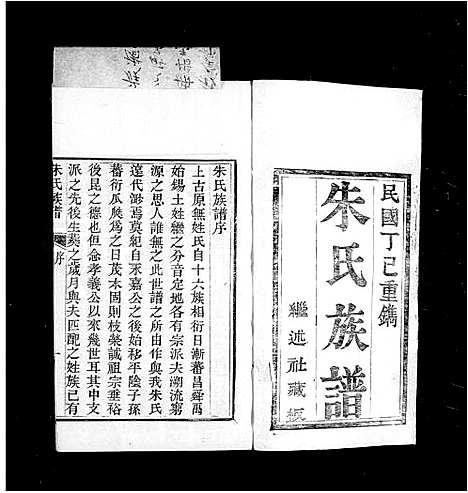 民國丁巳重鐫
朱氏族譜
繼述社藏板
朱氏族譜序
上古原無姓氏自十六族相衍日漸蕃昌舜禹
始錫土姓欒之分音定地各有宗派夫溯流窮
源之思人誰無之此世譜之所由作與我朱氏
遠代渺焉莫紀自永嘉公之後始移平陰子孫
蕃衍瓜瓞為之日茂本固則枝榮誠祖宗垂裕
後昆之德也但念孝義公以來幾世耳其中支
派之先後生葬之歲月與夫四配之姓族已有
朱氏族譜
序
一